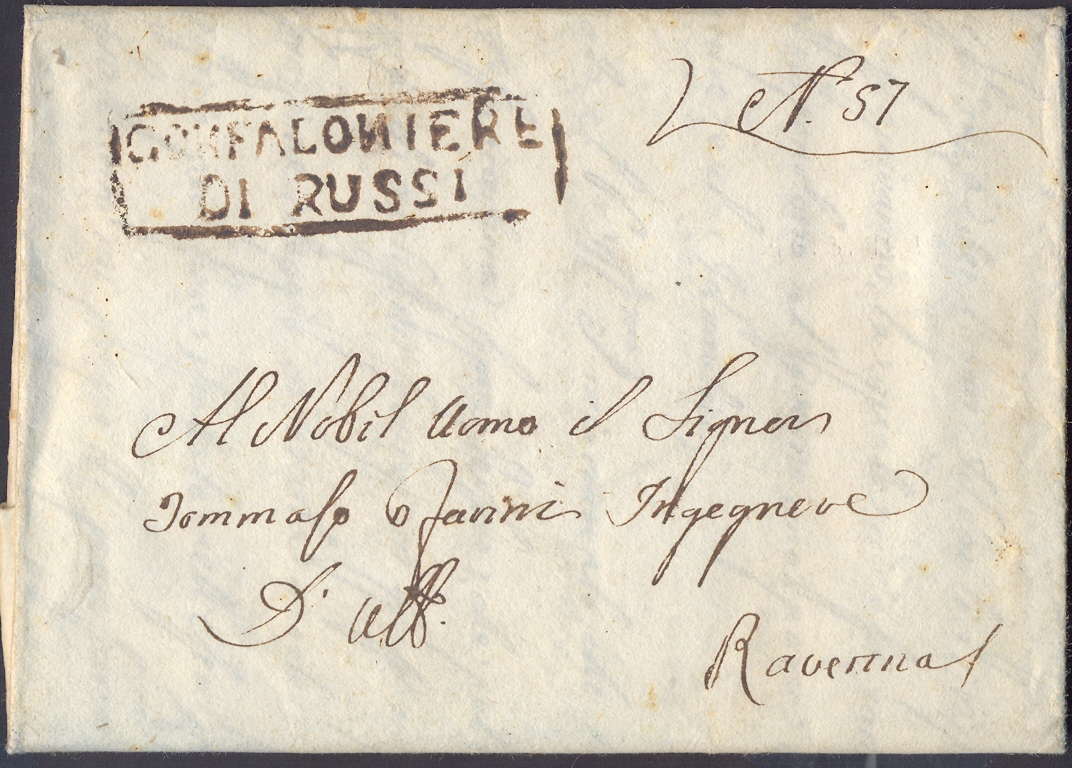 GONFALONIERE
DI RUSSI
N.° 57
Al Nobil Uomo il Signor
Tommaso Farini Ingegnere
D'uff.°
Ravenna